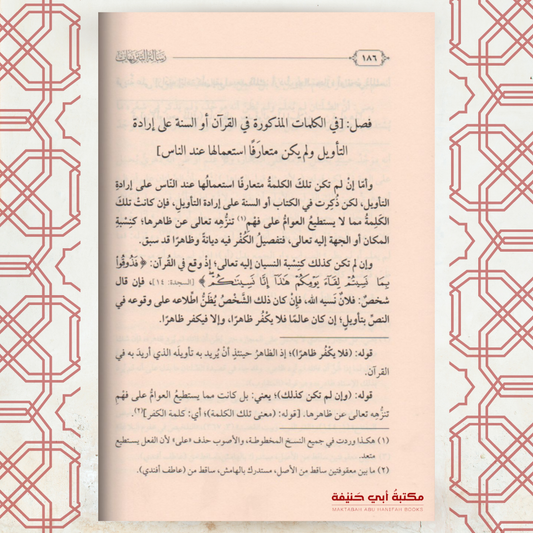 ١٨٦
رسالة التنزيهات
فصل: [في الكلمات المذكورة في القرآن أو السنة على إرادة
التأويل ولم يكن متعارَفًا استعمالها عند الناس]
وأمّا إنْ لم تكن تلكَ الكلمةُ متعارفًا استعمالُها عند النّاس على إرادةِ
التأويل، لكن ذُكِرت في الكتاب أو السنة على إرادة التأويلِ، فإن كانتْ تلكَ
الكَلِمةُ مما لا يستطيعُ العوامُّ على فهْمِ(١) تنزُّهِه تعالى عن ظاهرها؛ كنِسْبةِ
المكان أو الجهة إليه تعالى، فتفصيلُ الكُفْر فيه ديانةً وظاهرًا قد سبق.
وإن لم تكن كذلك كنِسْبة النسيان إليه تعالى؛ إذْ وقع في القُرآن: ﴿فَذُوقُوا۟
بِمَا نَسِيتُمْ لِقَآءَ يَوْمِكُمْ هَـٰذَآ إِنَّا نَسِينَـٰكُمْ﴾ [السجدة: ١٤]، فإن قال
شخصٌ: فلانٌ نَسيه الله، فإنْ كان ذلك الشَّخْصُ يُظَنُّ اطِّلاعه على وقوعه في
النصِّ بتأويلٍ؛ إن كان عالمًا فلا يكْفُر ظاهرًا، وإلا فيكفر ظاهرًا.
قوله: (فلا يكْفُر ظاهرًا)؛ إذ الظاهرُ حينئذٍ أنْ يُريد به تأويلَه الذي أريدَ به في
القرآن.
قوله: (وإن لم تكن كذلك)؛ يعني: بل كانت مما يستطيعُ العوامُّ على فهْم
تنزُّهه تعالى عن ظاهرها. [قوله: (معنى تلك الكلمة)؛ أي: كلمة الكفر](٢).
(١) هكذا وردت في جميع النسخ المخطوطة، والأصوب حذف «على» لأن الفعل يستطيع
متعد.
(٢) ما بين معقوفتين ساقط من الأصل، مستدرك بالهامش، ساقط من (عاطف أفندي).
مكتبة أبي حنيفة
MAKTABAH ABU HANIFAH BOOKS